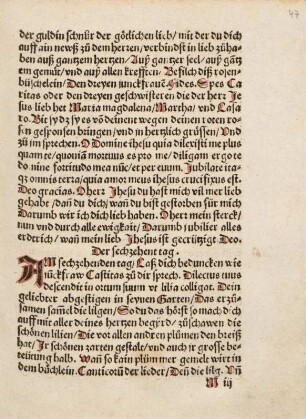 47
der guldin schnür der götlichen lieb/ mit der du dich
auff ain newß zů dem hertzen/ verbindst in lieb zůha-
ben auß gantzem hertzen/ Auß gantzer seel/ auß gãtz
em gemüt/ vnd auß allen krefften. Befilch diß rosen-
büschelein/ Den dreyen junckfrawẽ Fides. Spes Ca
ritas oder den dreyen geschwistern die der herr Je
sus lieb het Maria magdalena/ Martha/ vnd Lasa
ro. Bit sy dz sy es võ deinent wegen deinen roten ro
sen gesponsen bringen/ vnd in hertzlich grüssen/ Vnd
zů im sprechen. O Domine ihesu quia dilexisti me plus
quam te/ quoniã mortuus es pro me/ diligam ergo te do
mine fortitudo mea nũc/ et per euum. Jubilate itaq̃
omnis terra/ quia amor meus ihesus crucifixus est.
Deo gracias. O herr Jhesu du hast mich vil mer lieb
gehabt/ dañ du dich/ wañ du bist gestorben für mich
Darumb wir ich dich lieb haben. O herr mein sterck/
nun vnd durch alle ewigkait/ Darumb jubilier alles
erdtrich/ wañ mein lieb Jhesus ist gecrützigt Deo.
Der sechzehent tag.
AM sechzehenden tag/ Laß dich beduncken wie
jũckfraw Castitas zů dir sprech. Dilectus tuus
descendit in ortum suum vt lilia colligat. Dein
geliebter abgestigen in seynen Garten/ Das er zů-
samen samel die lilgen/ So du das hörst so mach dich
auff mit aller deines hertzen begird/ zůschawen die
schönen lilien/ Die vor allen andren plůmen den breiß
hat/ Jr schönen zarten gestalt/ vnd auch jr grosse be-
teütung halb. Wañ so kain plůmm mer gemelt wirt in
dem bůchlein. Canticorũ der lieder/ Deñ die lilg. Vñ
M iij